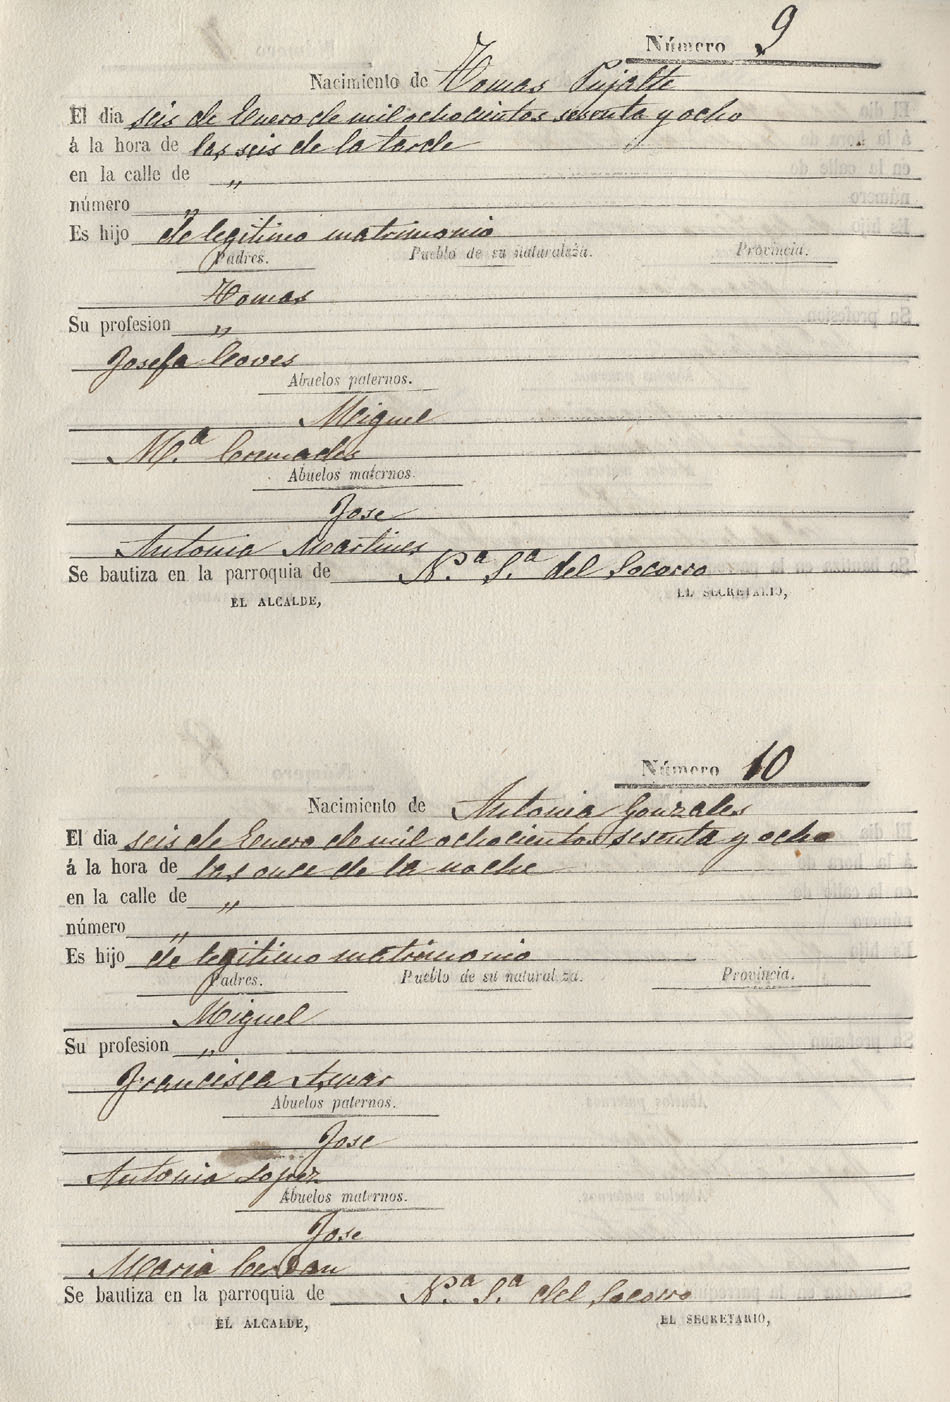 Número 9
Nacimiento de Tomas Pujalte
El dia seis de Enero de mil ochocientos sesenta y ocho
á la hora de las seis de la tarde
en la calle de „
número „
Es hijo de legitimo matrimonio
Padres. Pueblo de su naturaleza. Provincia.
Tomas
Su profesion „
Josefa Coves
Abuelos paternos.
Miguel
M.ª Cremades
Abuelos maternos.
Jose
Antonia Martines
Se bautiza en la parroquia de N.ª S.ª del Socorro
EL ALCALDE, EL SECRETARIO,
Número 10
Nacimiento de Antonia Gonzales
El dia seis de Enero de mil ochocientos sesenta y ocho
á la hora de las once de la noche
en la calle de „
número „
Es hijo de legitimo matrimonio
Padres. Pueblo de su naturaleza. Provincia.
Miguel
Su profesion „
Francisca Asnar
Abuelos paternos.
Jose
Antonia Lopez
Abuelos maternos.
Jose
Maria Cerdan
Se bautiza en la parroquia de N.ª S.ª del Socorro
EL ALCALDE, EL SECRETARIO,